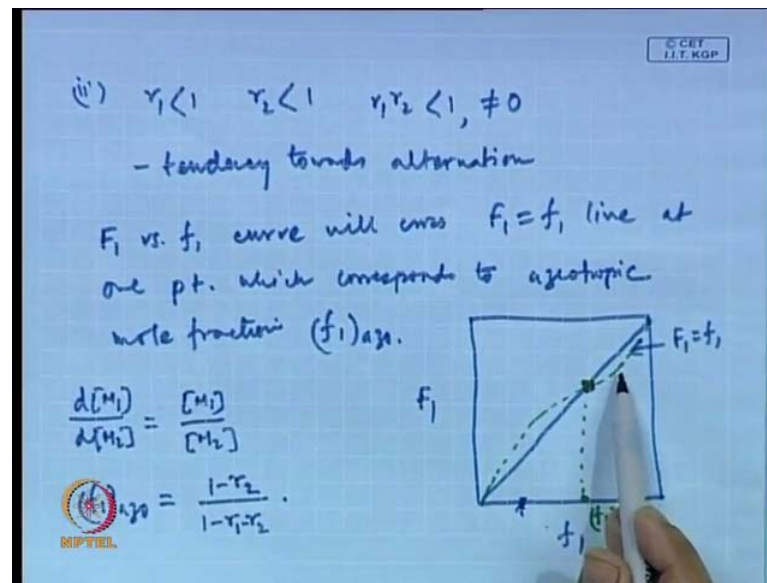 © CET
I.I.T. KGP
(ii) r₁<1 r₂<1 r₁r₂ <1, ≠0
- tendency towards alternation
F₁ vs. f₁ curve will cross F₁ = f₁ line at
one pt. which corresponds to azeotropic
mole fraction (f₁)azo.
d[M₁]/d[M₂] = [M₁]/[M₂]
F₁
F₁=f₁
azo = 1-r₂/1-r₁-r₂ .
(f₁)
f₁
NPTEL